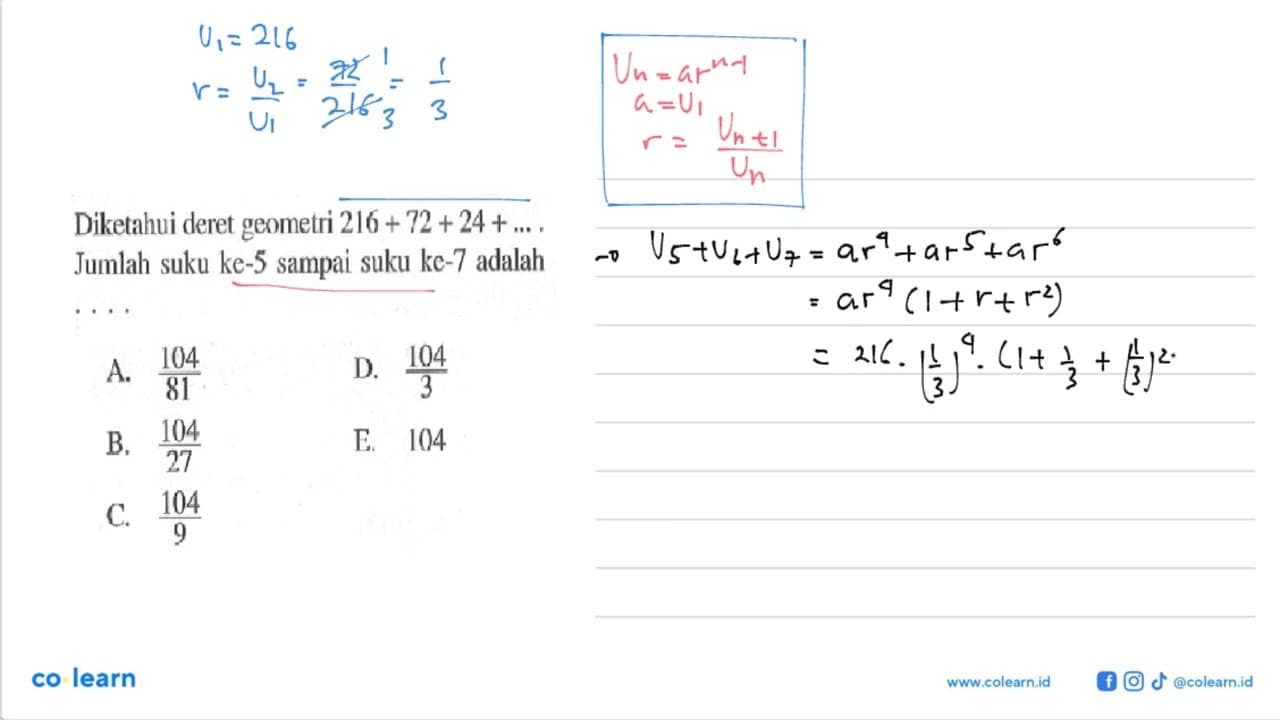 U₁ = 216
r = U₂/U₁ = 72/216 1/3 = 1/3
Uₙ = arⁿ⁻¹
a = U₁
r = Uₙ₊₁/Uₙ
Diketahui deret geometri 216 + 72 + 24 + ... .
Jumlah suku ke-5 sampai suku ke-7 adalah
. . . .
A. 104/81
B. 104/27
C. 104/9
D. 104/3
E. 104
→ U₅ + U₆ + U₇ = ar⁴ + ar⁵ + ar⁶
= ar⁴ (1 + r + r²)
= 216 . (1/3)⁴ . (1 + 1/3 + (1/3)².
co learn
www.colearn.id
@colearn.id